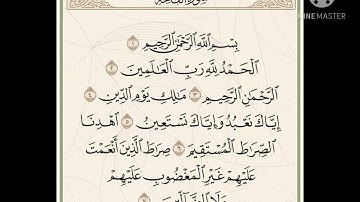 سورة الفاتحة
KINEMASTER
بِسْمِ ٱللَّهِ ٱلرَّحْمَٰنِ ٱلرَّحِيمِ ١
ٱلْحَمْدُ لِلَّهِ رَبِّ ٱلْعَٰلَمِينَ ٢
ٱلرَّحْمَٰنِ ٱلرَّحِيمِ ٣ مَٰلِكِ يَوْمِ ٱلدِّينِ ٤
إِيَّاكَ نَعْبُدُ وَإِيَّاكَ نَسْتَعِينُ ٥ ٱهْدِنَا
ٱلصِّرَٰطَ ٱلْمُسْتَقِيمَ ٦ صِرَٰطَ ٱلَّذِينَ أَنْعَمْتَ
عَلَيْهِمْ غَيْرِ ٱلْمَغْضُوبِ عَلَيْهِمْ
وَلَا ٱلضَّآلِّينَ ٧